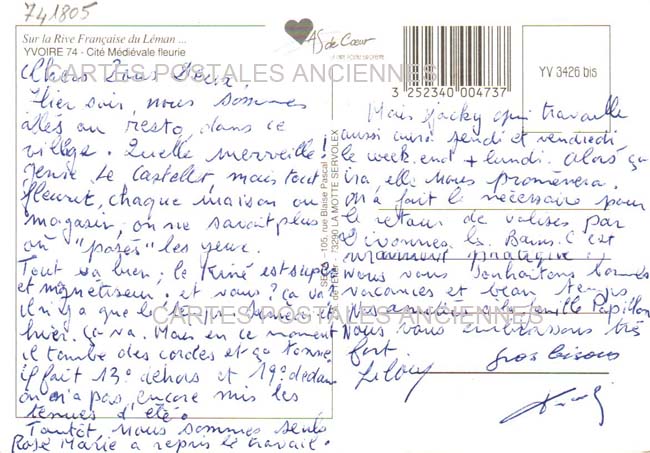 741805
Sur la Rive Française du Léman ...
YVOIRE 74 - Cité Médiévale fleurie
As de Cœur
3 252340 004737
YV 3426 bis
CARTES POSTALES ANCIENNES
Chers Tous Deux,
Hier soir, nous sommes
allés au resto, dans ce
village. Quelle merveille!
genre Le Castellet mais tout
fleuret, chaque maison ou
magasin, on ne savait plus
où "poser" les yeux.
Tout va bien; le Kiné est super
et magnétiseur; et vous? ça va
il n'y a que le temps
hier. ça va. Mais en ce moment
il tombe des cordes et ça tonne,
il fait 13° dehors et 19° dedans
on n'a pas encore mis les
tenues d'été.
Tantôt nous sommes seuls
Rose Marie a repris le travail.
105, rue Blaise Pascal
73290 LA MOTTE SERVOLEX
Mais Jacky qui travaille
aussi aura jeudi et vendredi
le week-end + lundi. Alors ça
ira, elle nous promènera.
On a fait le nécessaire pour
le retour de valises par
Divonne les Bains. C'est
vraiment pratique!
Nous vous souhaitons bonnes
vacances et beau temps
Papillon
Nous vous embrassons très
fort
gros bisous
CARTES POSTALES ANCIENNES